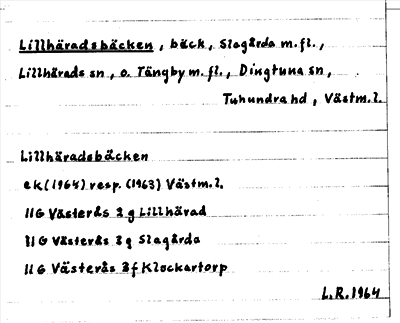 Lillhäradsbäcken, bäck, Slagårda m.fl.,
Lillhärads sn, o. Tängby m.fl., Dingtuna sn,
Tuhundra hd, Västm.l.
Lillhäradsbäcken
ek (1964) resp. (1963) Västm.l.
11G Västerås 2g Lillhärad
11G Västerås 2g Slagårda
11G Västerås 3f Klockartorp
L.R. 1964